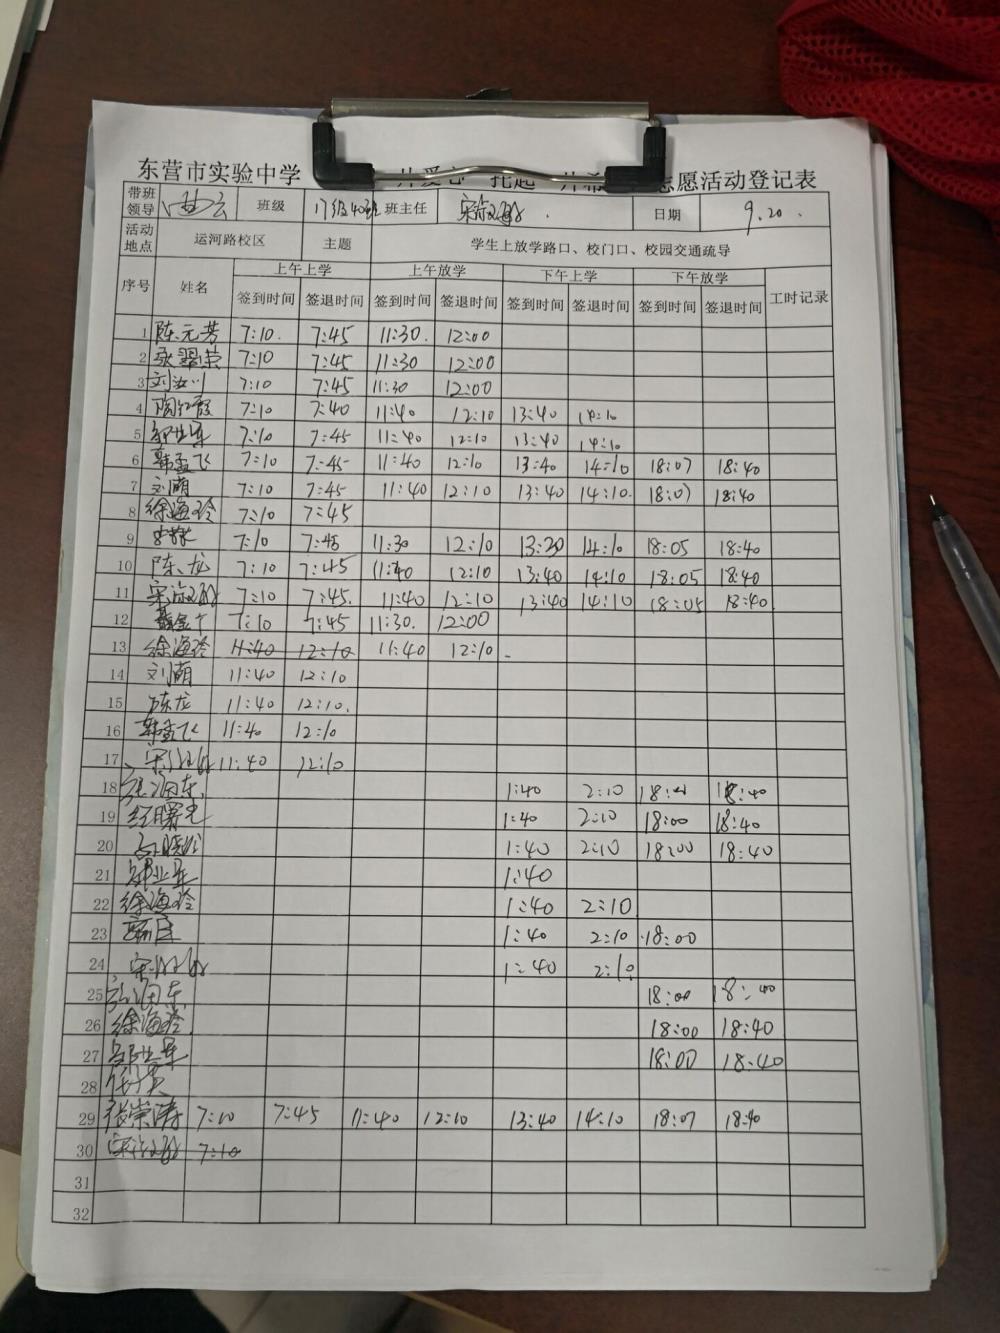 东营市实验中学 志愿活动登记表
带班领导 班级 17级40班 班主任 宋淑敏 日期 9.20.
活动地点 运河路校区 主题 学生上放学路口、校门口、校园交通疏导
序号 姓名 上午上学 上午放学 下午上学 下午放学 工时记录
签到时间 签退时间 签到时间 签退时间 签到时间 签退时间 签到时间 签退时间
1 陈元芳 7:10. 7:45 11:30. 12:00
2 7:10 7:45 11:30 12:00
3 刘汝川 7:10 7:45 11:30 12:00
4 陶红霞 7:10 7:40 11:40 12:10 13:40 14:10
5 7:10 7:45 11:40 12:10 13:40 14:10
6 韩孟飞 7:10 7:45 11:40 12:10 13:40 14:10 18:07 18:40
7 刘萌 7:10 7:45 11:40 12:10 13:40 14:10. 18:07 18:40
8 徐海玲 7:10 7:45
9 7:10 7:45 11:30 12:10 13:30 14:10 18:05 18:40
10 陈龙 7:10 7:45 11:40 12:10 13:40 14:10 18:05 18:40
11 宋淑敏 7:10 7:45. 11:40 12:10 13:40 14:10 18:05 18:40
12 7:10 7:45 11:30. 12:00
13 徐海玲 11:40 12:10 11:40 12:10
14 刘萌 11:40 12:10
15 陈龙 11:40 12:10.
16 韩孟飞 11:40 12:10
17 宋淑敏 11:40 12:10
18 1:40 2:10 18:40
19 1:40 2:10 18:00 18:40
20 1:40 2:10 18:00 18:40
21 1:40
22 徐海玲 1:40 2:10
23 1:40 2:10 18:00
24 宋淑敏 1:40 2:10
25 18:00 18:40
26 徐海玲 18:00 18:40
27 18:00 18:40
28
29 张崇涛 7:10 7:45 11:40 12:10 13:40 14:10 18:07 18:40
30 宋淑敏 7:10
31
32